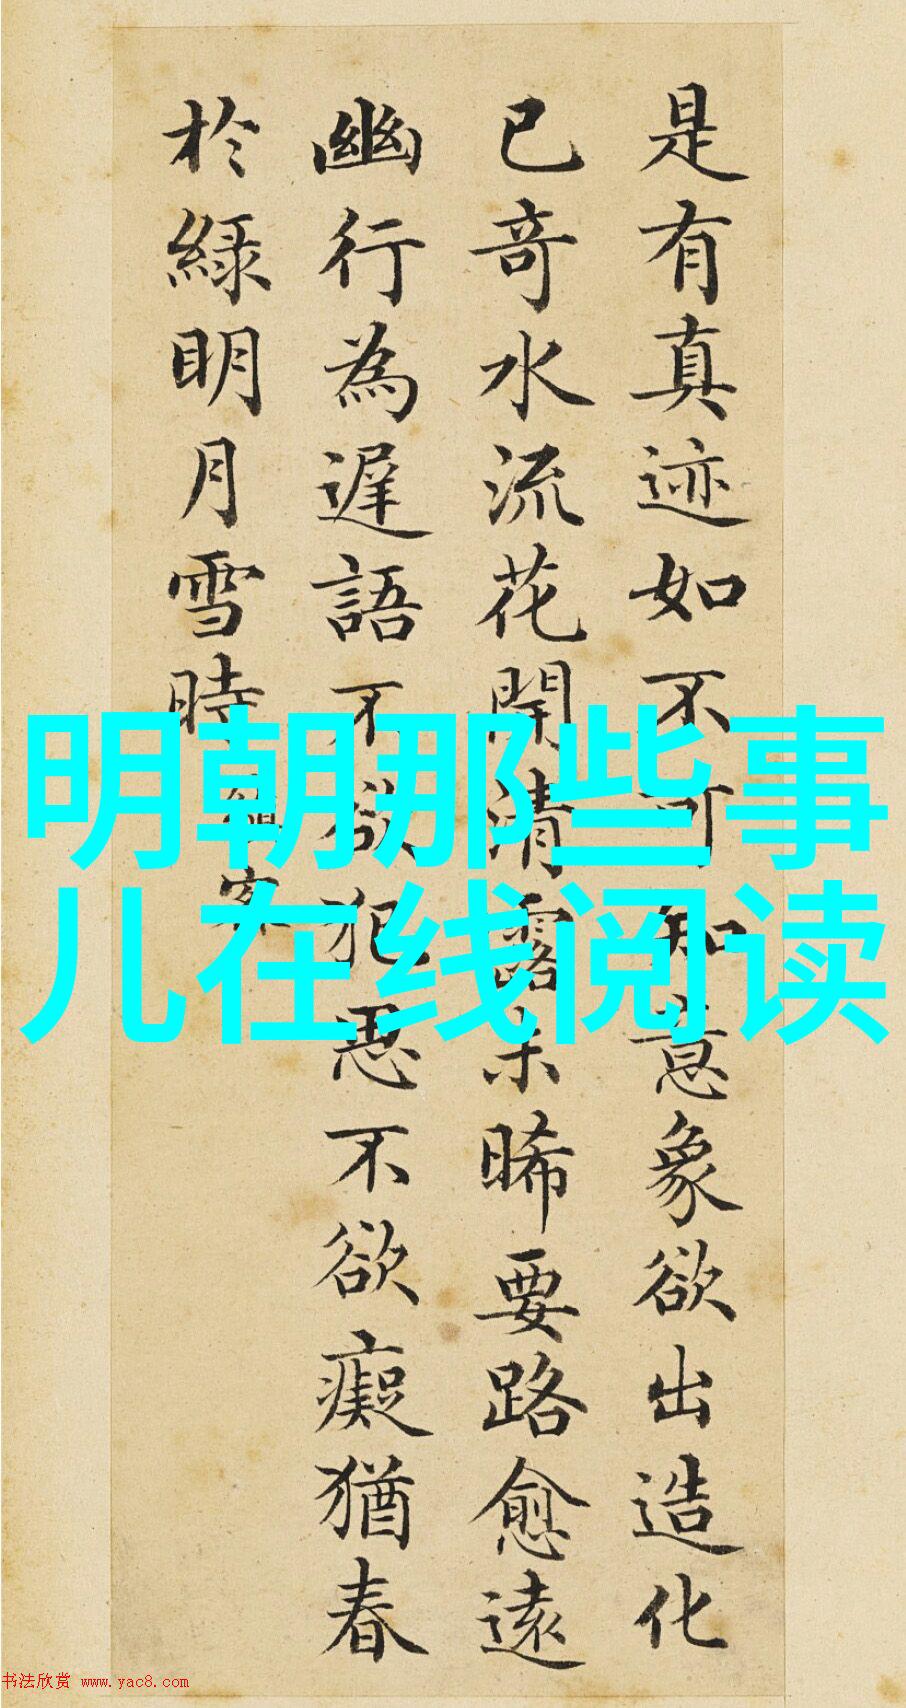 是有真迹如不可知意象欲出造化
已竒水流花開清露未晞要路愈遠
幽行為遲語不欲犯思不欲癡猶春
於綠明月雪時
明朝那些事
儿在线阅读
书法欣赏 www.yac8.com